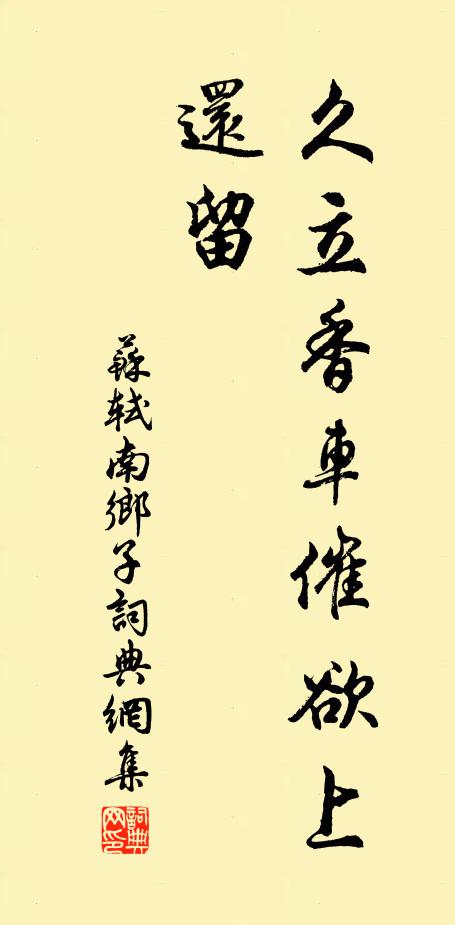 久立香車催欲上
還留
蘇軾南鄉子詞典網集
詞典網印